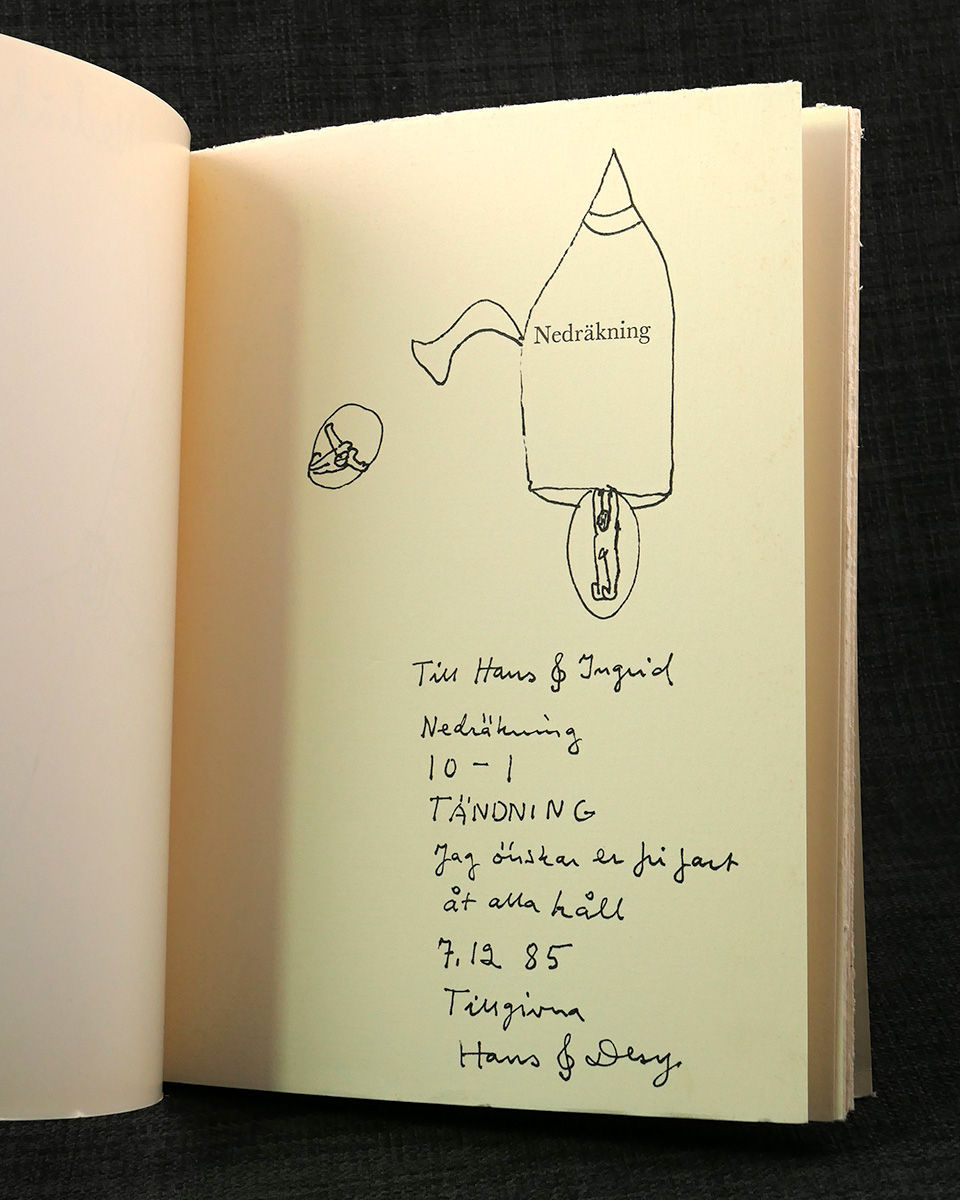 Nedräkning
Till Hans & Ingrid
Nedräkning
10 - 1
TÄNDNING
Jag önskar er fri fart
åt alla håll
7.12 85
Tillgivna
Hans & Desy